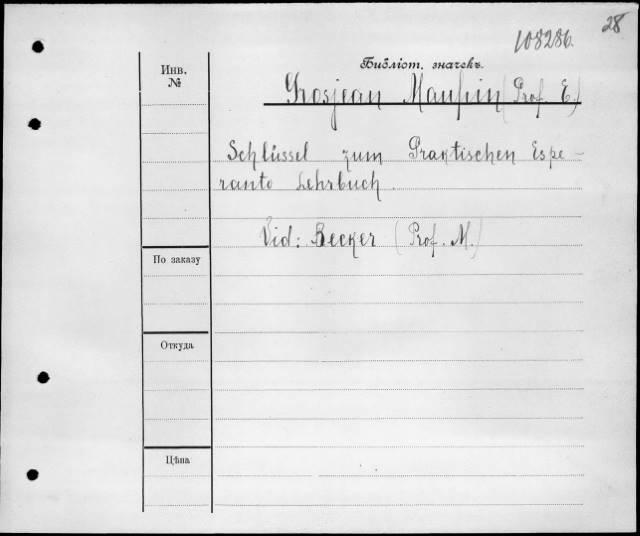 28
108286.
Библіот. значекъ.
Инв.
№
Grosjean Maupin (Prof. E.)
Schlüssel zum Praktischen Espe-
ranto Lehrbuch.
Vid: Becker (Prof. M.)
По заказу
Откуда
Цѣна